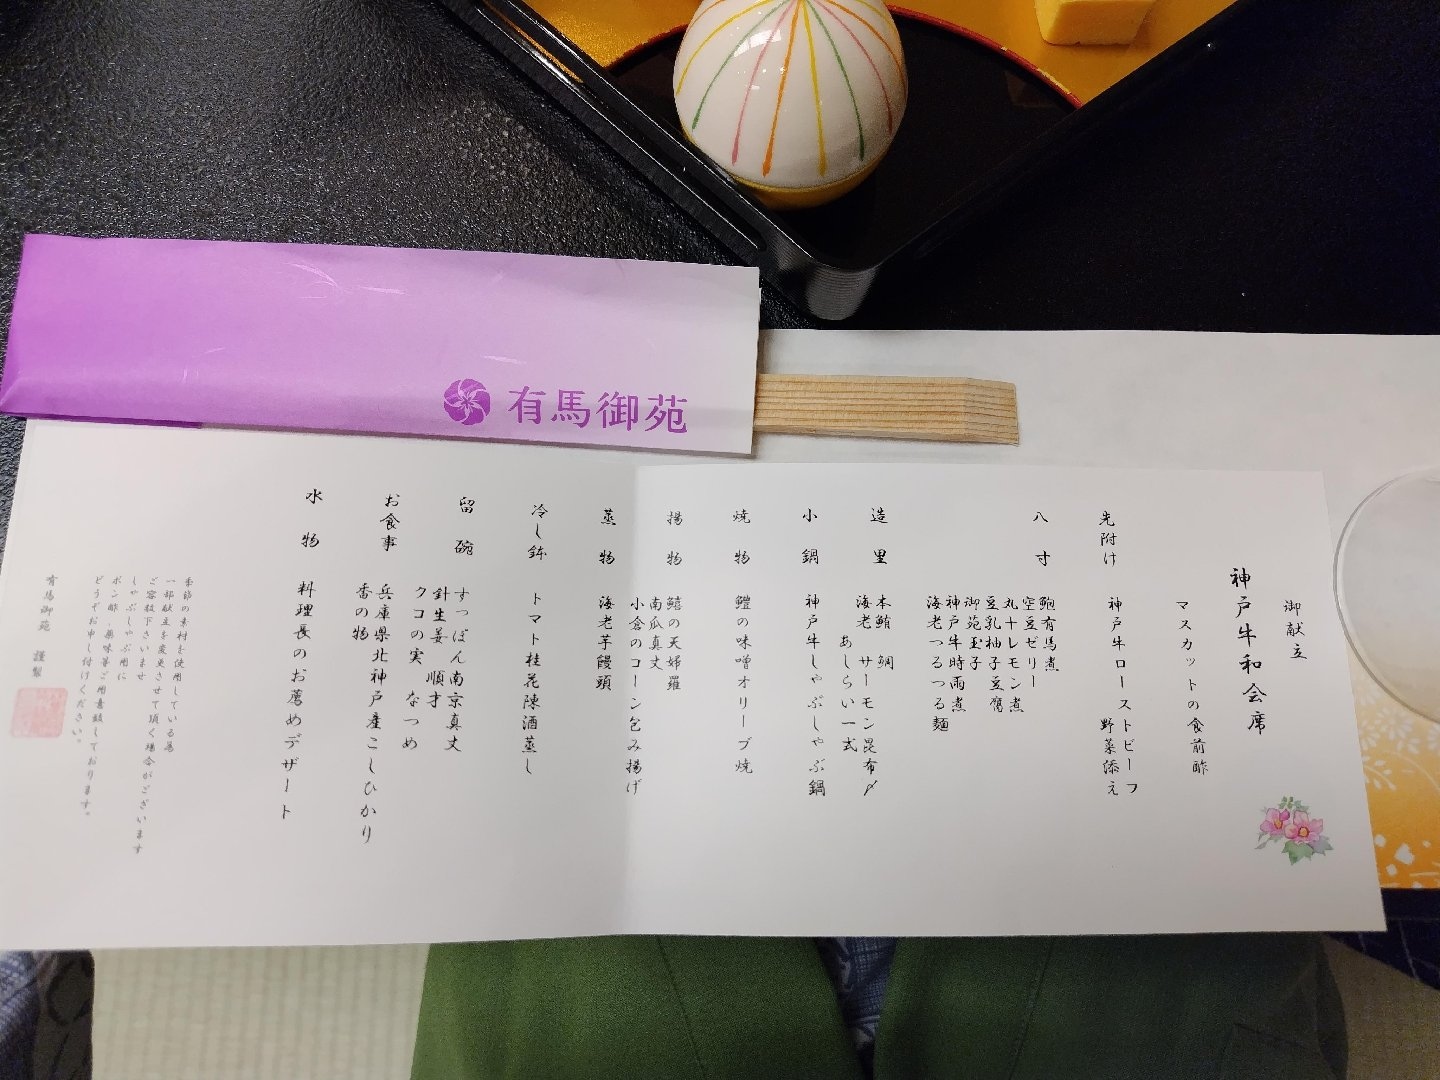 有馬御苑
御献立
神戸牛和会席
マスカットの食前酢
先附け 神戸牛ローストビーフ
野菜添え
八寸 鮑有馬煮
空豆ゼリー
丸十レモン煮
豆乳柚子豆腐
御苑玉子
神戸牛時雨煮
海老つるつる麺
造里 本鮪 鯛 サーモン昆布〆
海老 あしらい一式
小鍋 神戸牛しゃぶしゃぶ鍋
焼物 鱧の味噌オリーブ焼
揚物 鱚の天婦羅
南瓜真丈
小倉のコーン包み揚げ
蒸物 海老芋饅頭
冷し鉢 トマト桂花陳酒蒸し
留碗 すっぽん南京真丈
針生姜 順才
クコの実 なつめ
お食事 兵庫県北神戸産こしひかり
香の物
水物 料理長のお薦めデザート
季節の素材を使用している為
一部献立を変更させて頂く場合がございます
ご容赦下さいませ
しゃぶしゃぶ用に
ポン酢、薬味等ご用意致しております。
どうぞお申し付けください。
有馬御苑 謹製